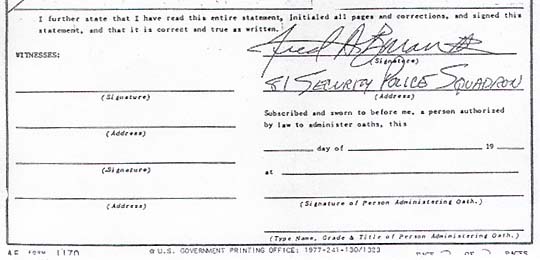 I further state that I have read this entire statement, initialed all pages and corrections, and signed this
statement, and that it is correct and true as written.
WITNESSES:
Fred A
(Signature)
81 SECURITY POLICE SQUADRON
(Signature)
(Address)
Subscribed and sworn to before me, a person authorized
by law to administer oaths, this
(Address)
day of 19
(Signature)
at
(Signature of Person Administering Oath.)
(Address)
(Type Name, Grade & Title of Person Administering Oath.)
AF 1170
U.S. GOVERNMENT PRINTING OFFICE: 1977-241-130/1323